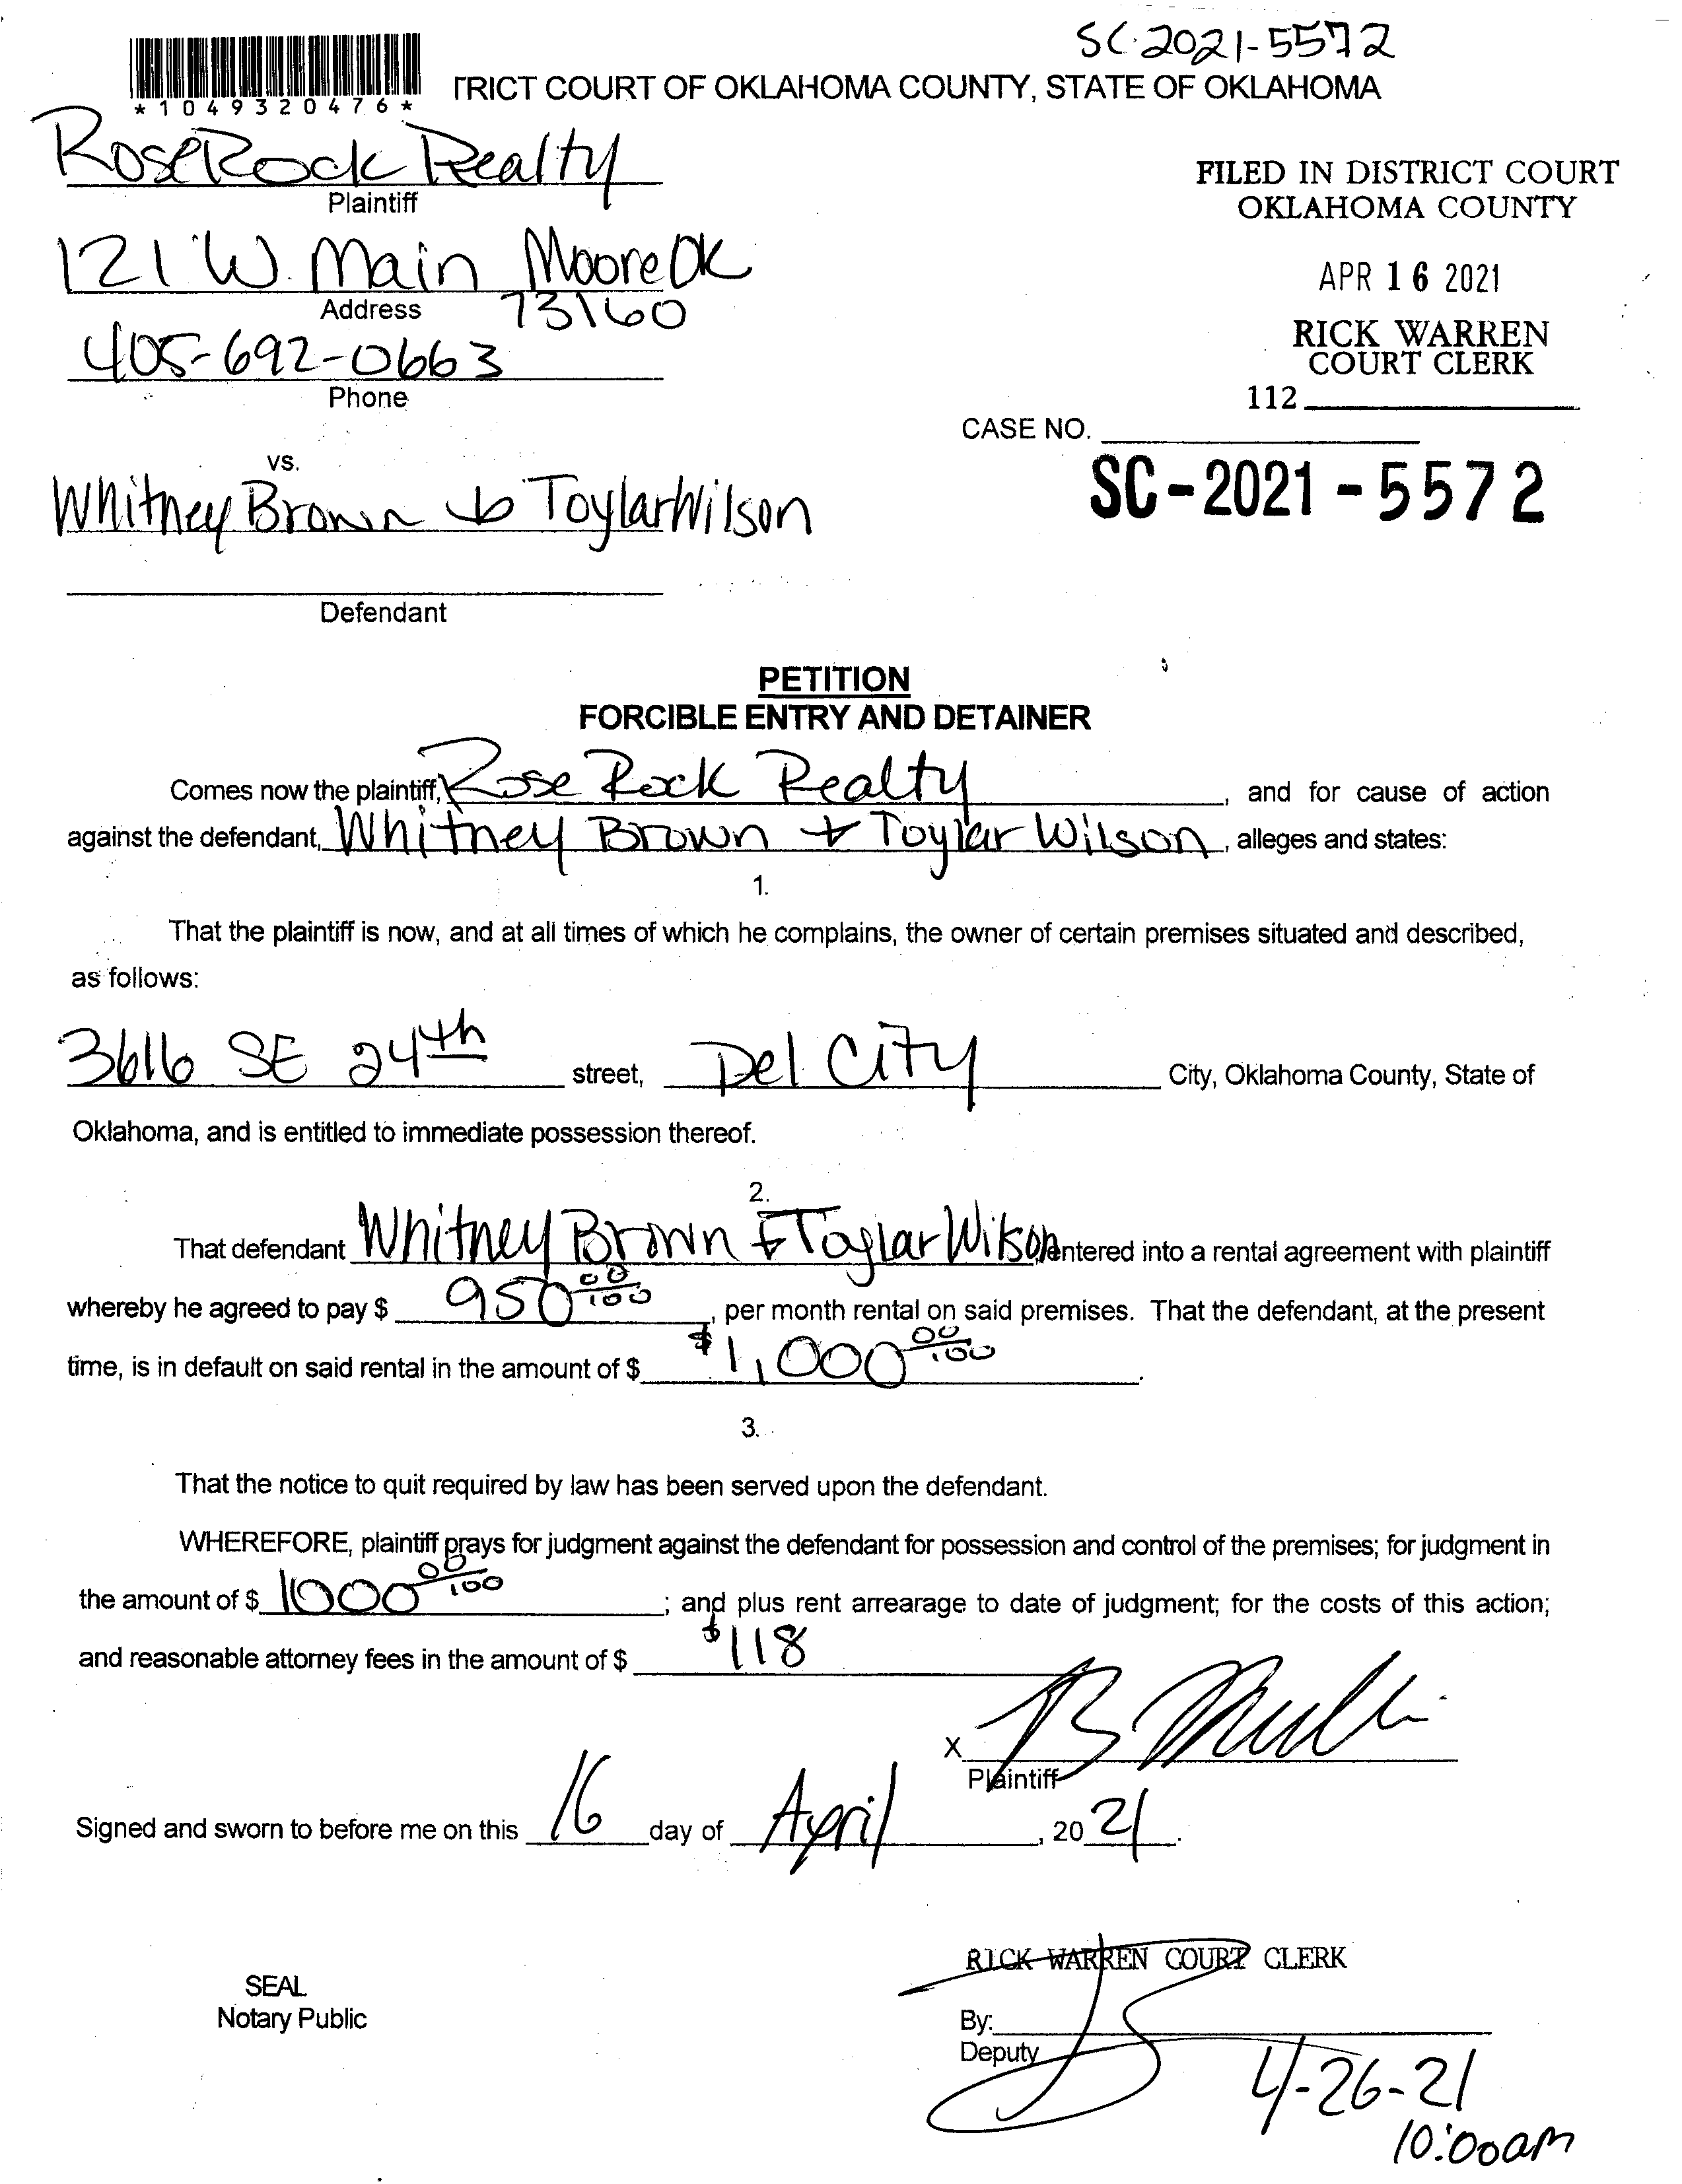 SC-2021-5572
*1049320476*
TRICT COURT OF OKLAHOMA COUNTY, STATE OF OKLAHOMA
RoseRock Realty
Plaintiff
FILED IN DISTRICT COURT
OKLAHOMA COUNTY
121 W. Main Moore OK
Address 73160
APR 16 2021
405-692-0663
Phone
RICK WARREN
COURT CLERK
112
CASE NO.
SC-2021-5572
vs.
Whitney Brown & Toylar Wilson
Defendant
PETITION
FORCIBLE ENTRY AND DETAINER
Comes now the plaintiff, Rose Rock Realty, and for cause of action
against the defendant, Whitney Brown + Toylar Wilson, alleges and states:
1.
That the plaintiff is now, and at all times of which he complains, the owner of certain premises situated and described,
as follows:
3616 SE 24th street, Del City City, Oklahoma County, State of
Oklahoma, and is entitled to immediate possession thereof.
2.
That defendant Whitney Brown & Toylar Wilson entered into a rental agreement with plaintiff
whereby he agreed to pay $ 950 00/100, per month rental on said premises. That the defendant, at the present
time, is in default on said rental in the amount of $ $1,000 00/100.
3.
That the notice to quit required by law has been served upon the defendant.
WHEREFORE, plaintiff prays for judgment against the defendant for possession and control of the premises; for judgment in
the amount of $ 1000 00/100; and plus rent arrearage to date of judgment; for the costs of this action;
and reasonable attorney fees in the amount of $ $118
X
Plaintiff
Signed and sworn to before me on this 16 day of April, 2021.
RICK WARREN COURT CLERK
SEAL
Notary Public
By:
Deputy
4-26-21
10:00am